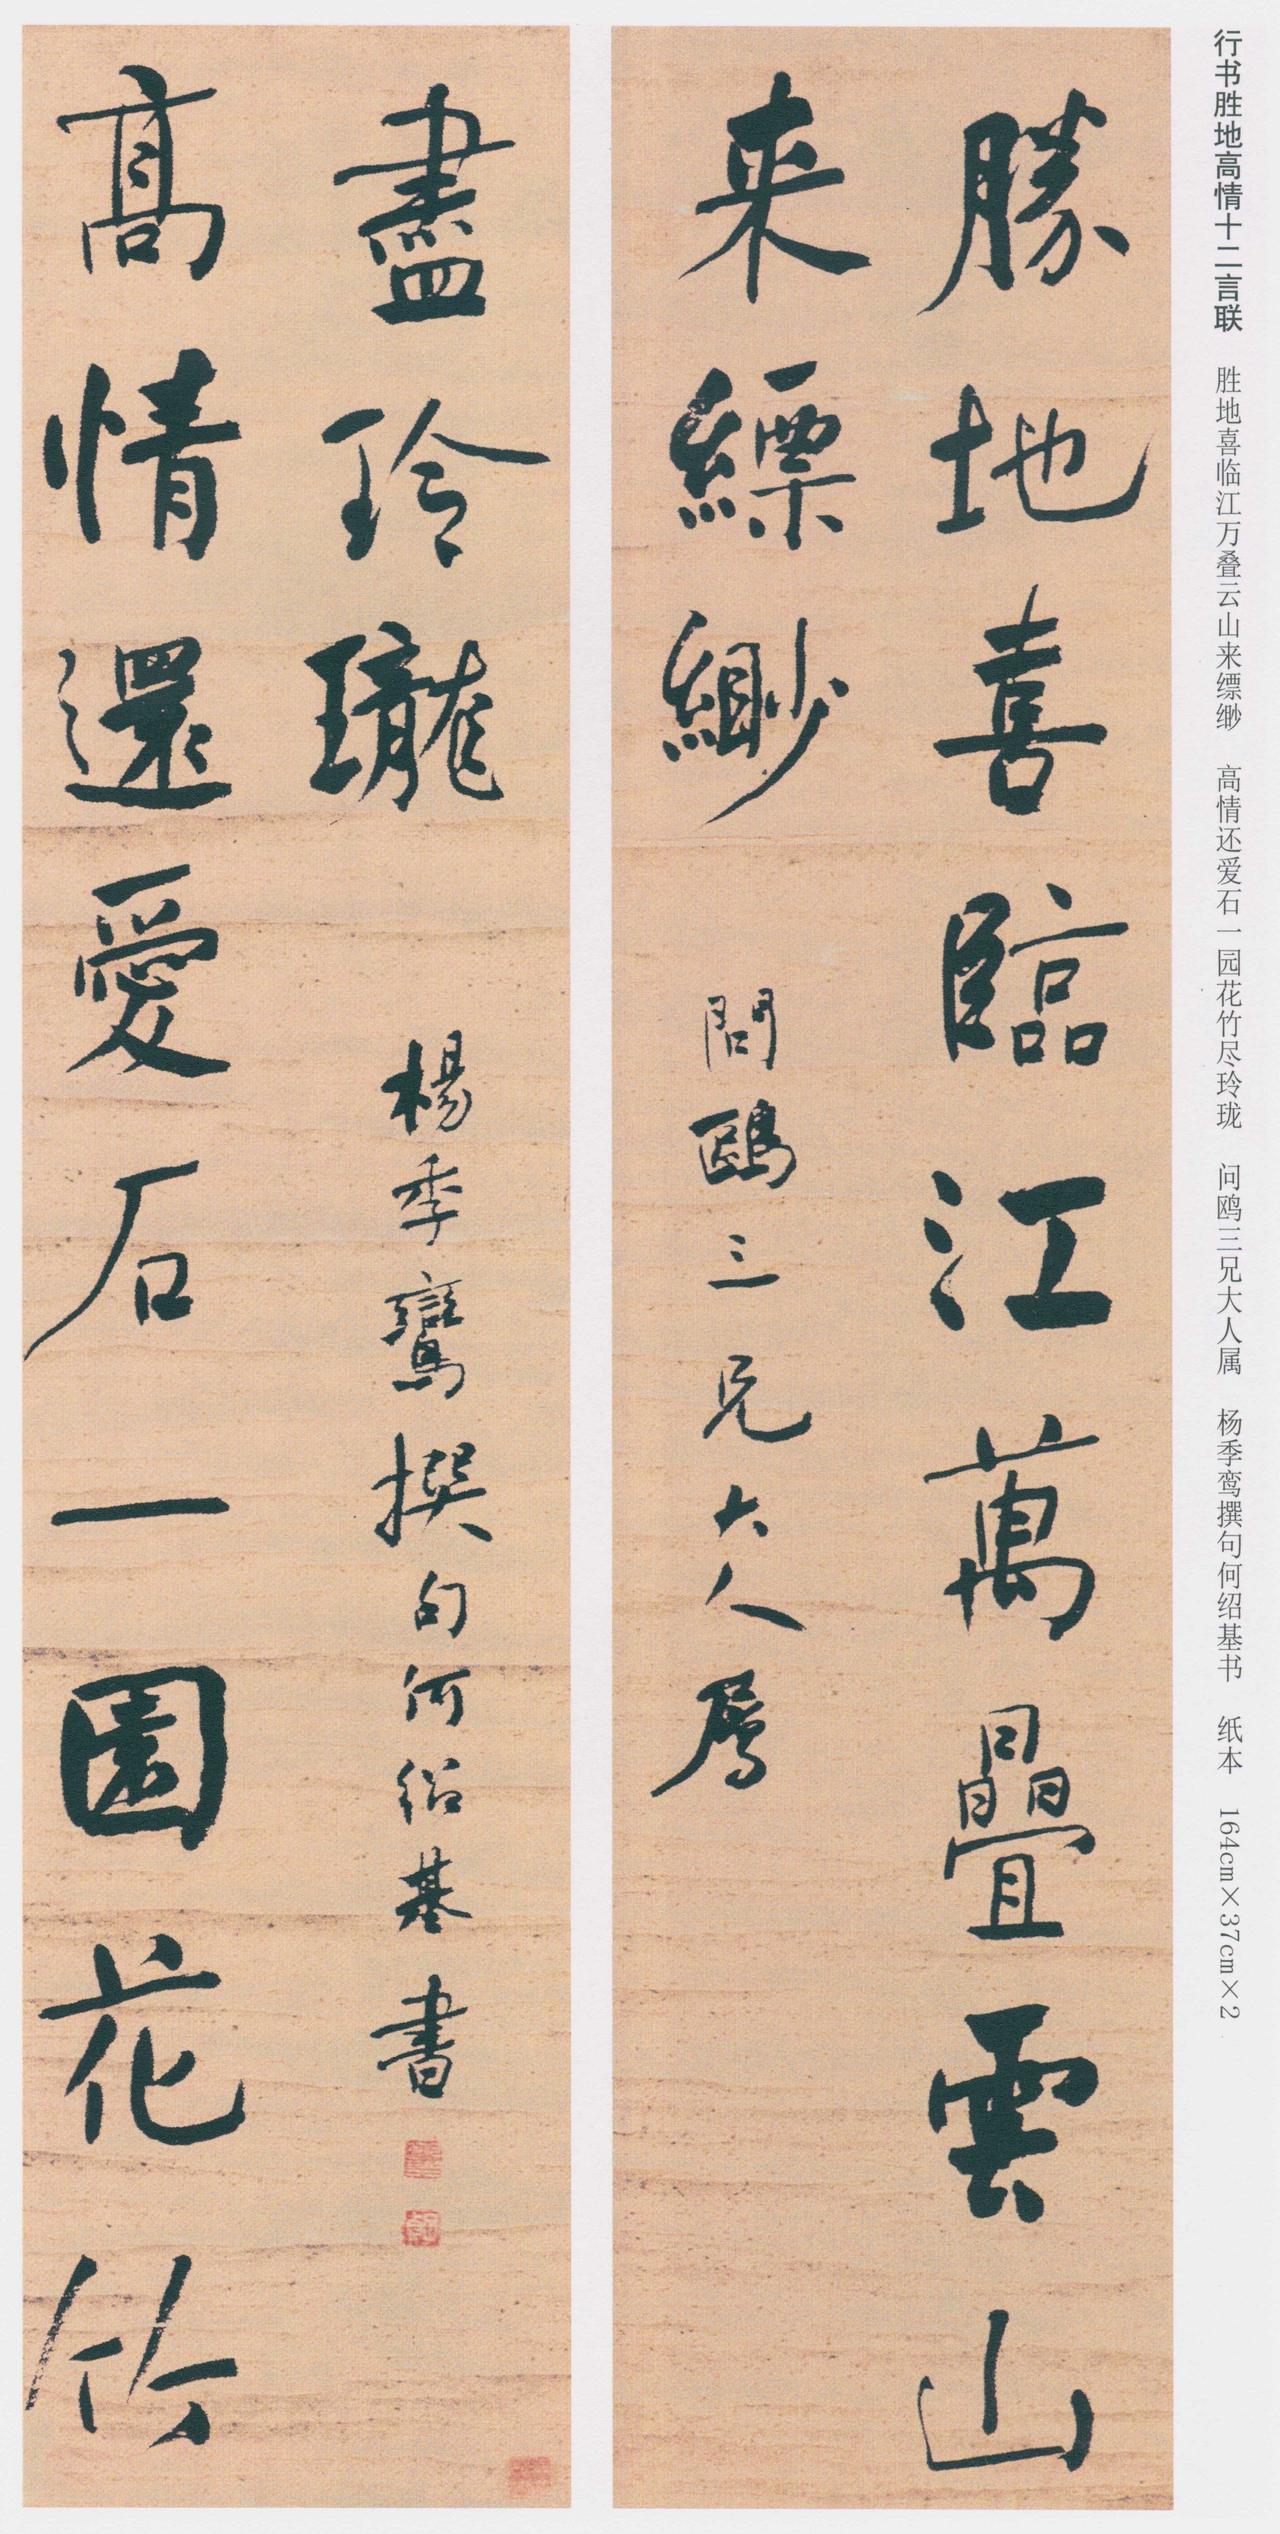 行书胜地高情十二言联 胜地喜临江万叠云山来缥缈 高情还爱石一园花竹尽玲珑 问鸥三兄大人属 杨季鸾撰句何绍基书 纸本 164cm×37cm×2
勝地喜臨江萬疊雲山
来縹緲
問鷗三兄大人属
高情還愛石一園花竹
盡玲瓏
楊季鸞撰句何紹基書